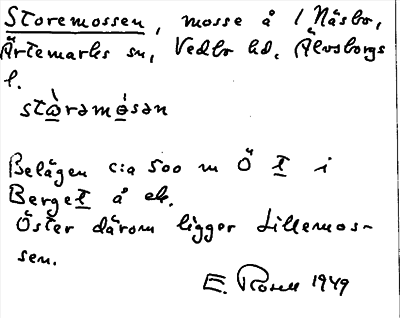 Storemossen, mosse å 1 Näsbo,
Ärtemarks sn, Vedbo hd, Älvsborgs
l.
stɷ̀rəmɵ́sən
Belägen c:a 500 m Ö t i
Berget å ek.
Öster därom ligger Lillemos-
sen.
E. Rosell 1949